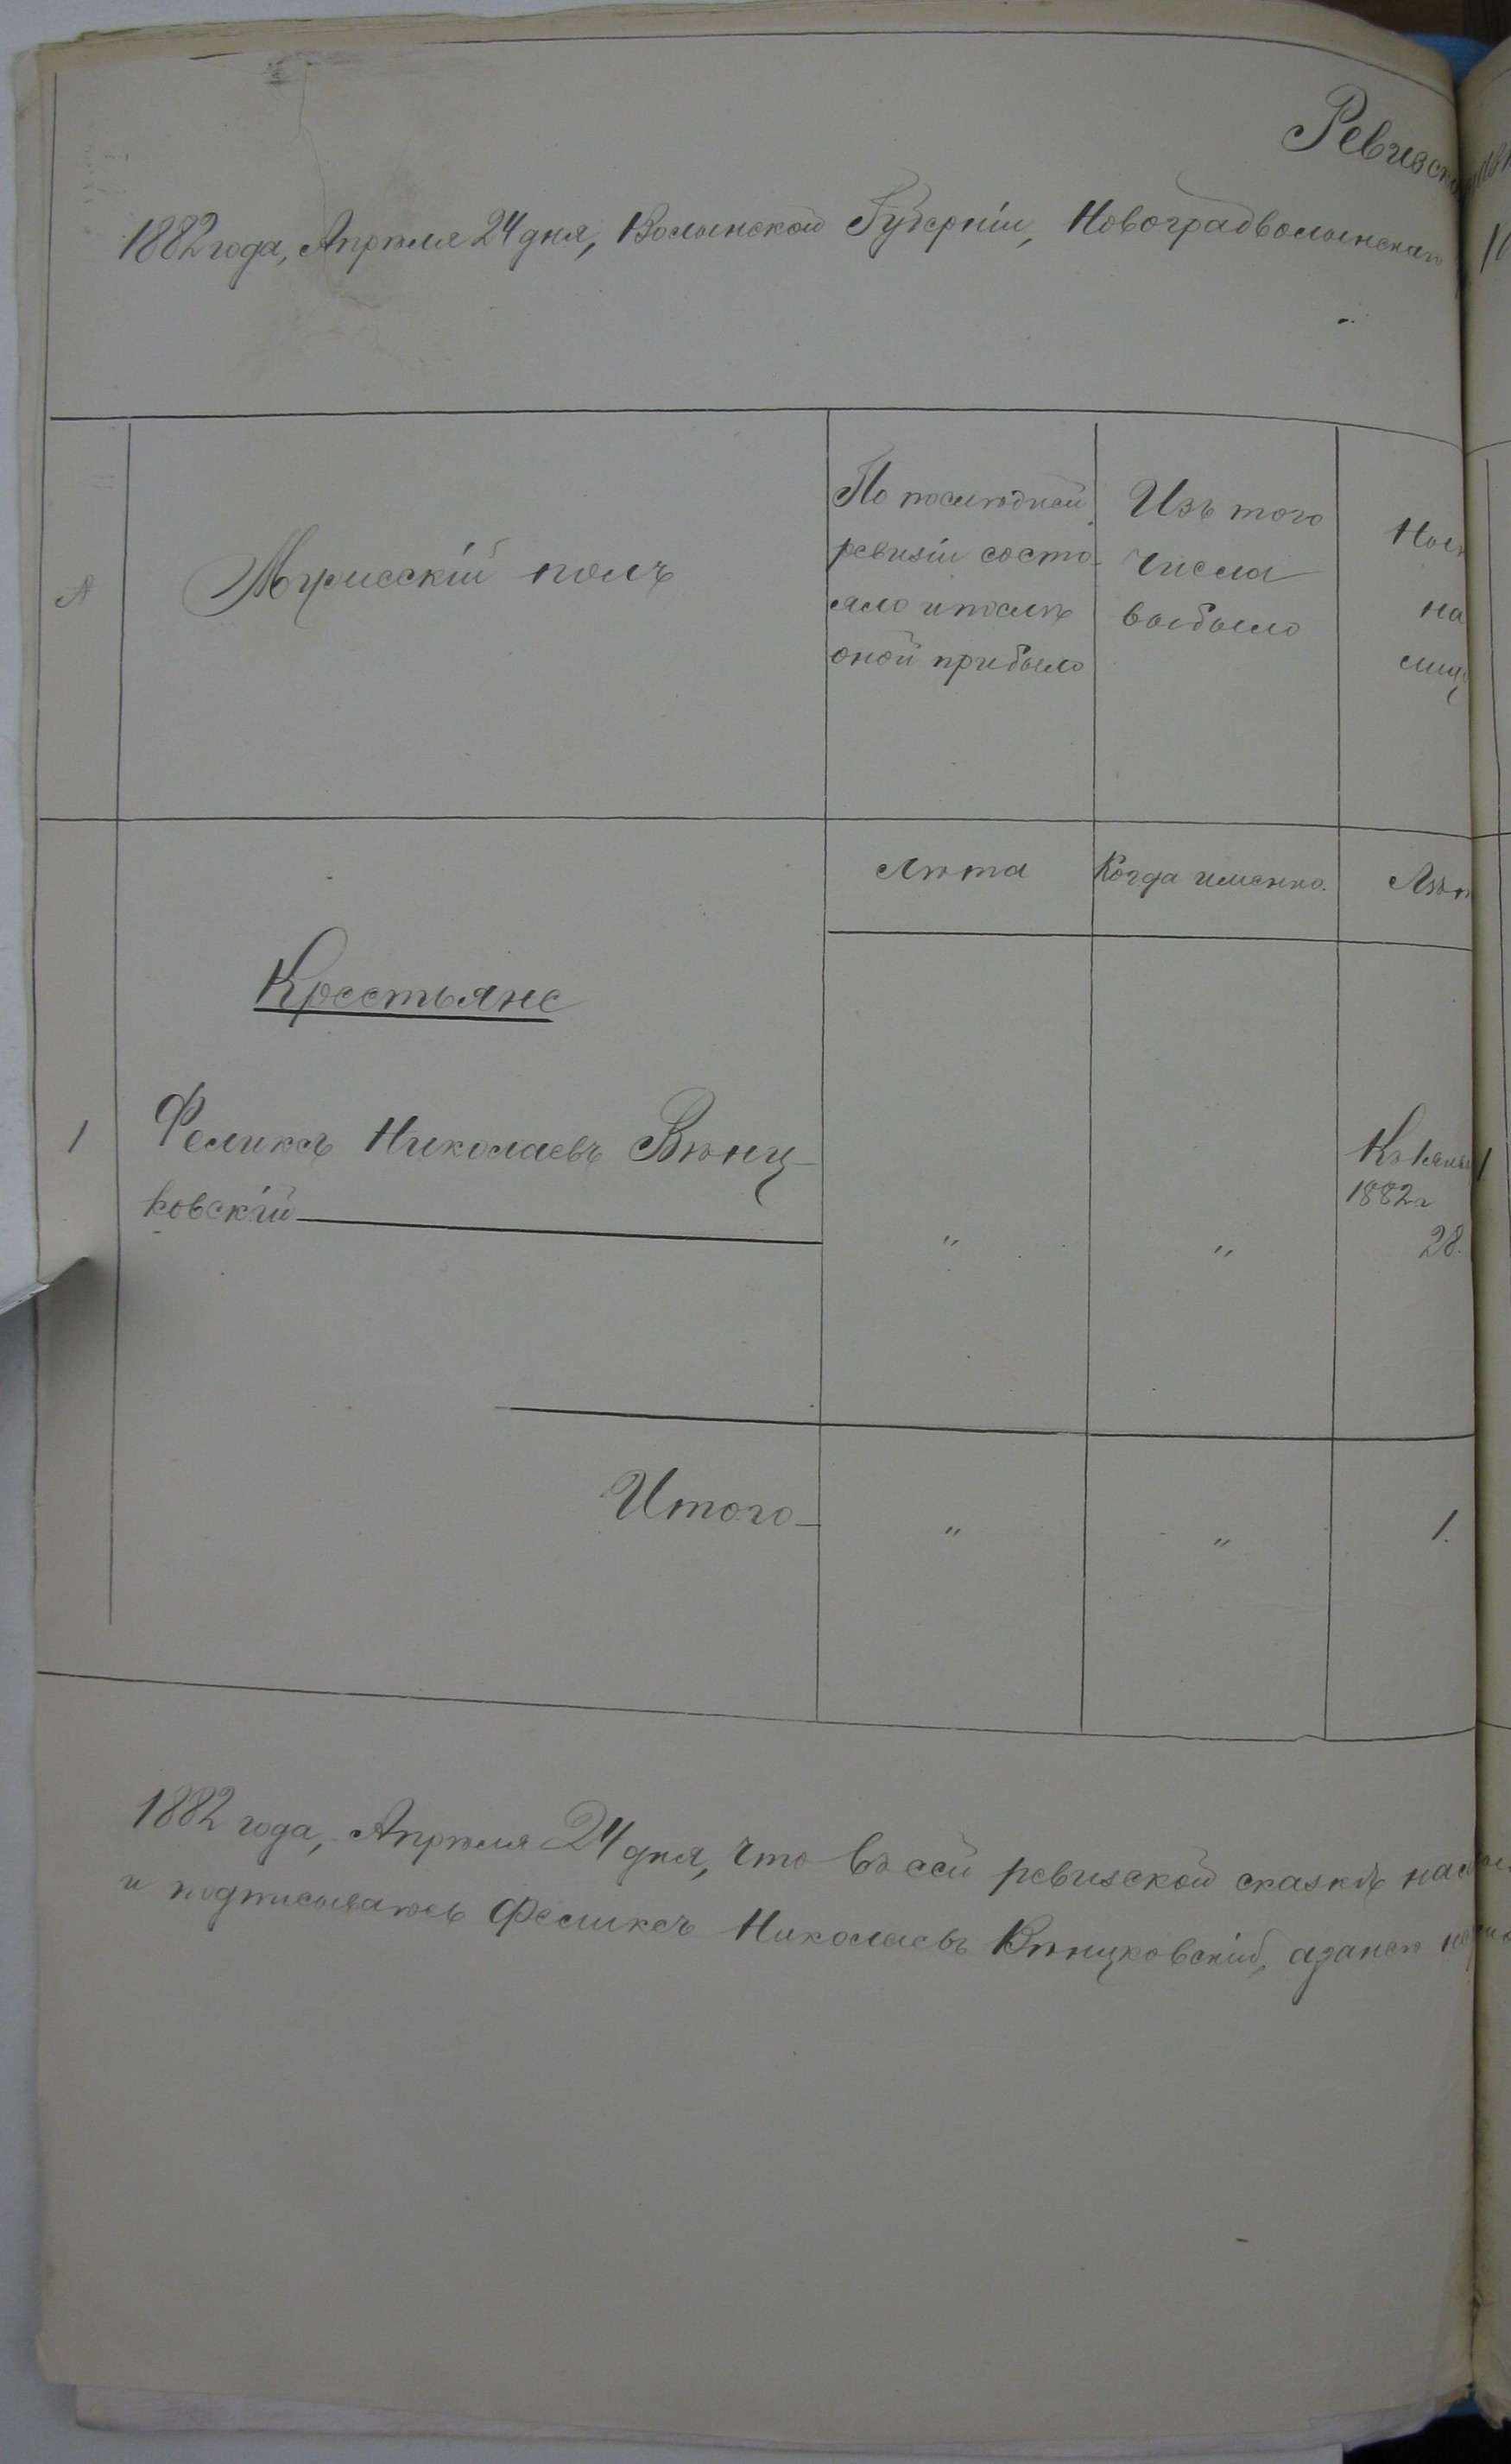 Ревизск
1882 года, Апрѣля 24 дня, Волынской Губерніи, Новоградволынскаго
Мужескій полъ
По послѣдней
ревизіи состо-
яло и послѣ
оной прибыло
Изъ того
числа
выбыло
на
лиц
Лѣта
Когда именно.
Лѣт
Крестьяне
1
Феликсъ Николаевъ Вѣнц-
ковскій
"
"
1882 г
28.
Итого
"
"
1.
1882 года, Апрѣля 24 дня, что въ сей ревизской сказкѣ
и подписываюсь Феликсъ Николаевъ Вѣнцковскій, а за него